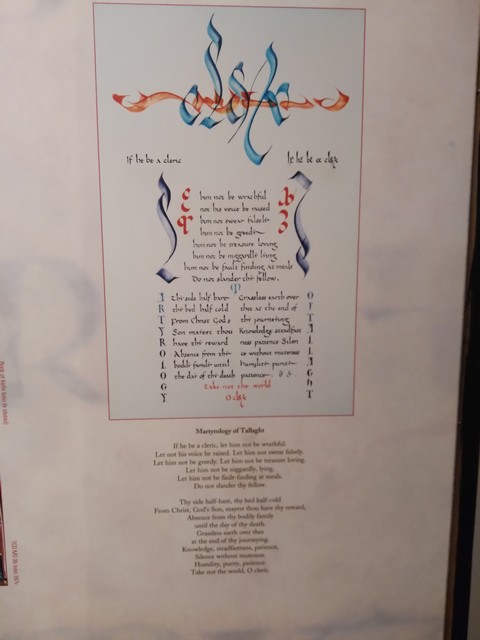 If he be a cleric
let him not be wrathful
not his voice be raised
him not swear falsely
him not be greedy
him not be treasure loving
him not be niggardly lying
him not be fault finding at meals
Do not slander thy fellow.
MARTYROLOGY
OF TALLAGHT
Thy side half bare
thy bed half cold
From Christ God's
Son mayest thou
have thy reward
Absence from thy
bodily family until
the day of thy death
Grassless earth over
thee at the end of
thy journeying
Knowledge steadfast
ness patience Silen
ce without
Humility purity
patience
Take not the world
O cleric
Martyrology of Tallaght
If he be a cleric, let him not be wrathful.
Let not his voice be raised. Let him not swear falsely.
Let him not be greedy. Let him not be treasure loving.
Let him not be niggardly, lying.
Let him not be fault-finding at meals.
Do not slander thy fellow.
Thy side half-bare, thy bed half-cold
From Christ, God's Son, mayest thou have thy reward,
Absence from thy bodily family
until the day of thy death.
Grassless earth over thee
at the end of thy journeying.
Knowledge, steadfastness, patience,
Silence without
Humility, purity, patience.
Take not the world, O cleric.